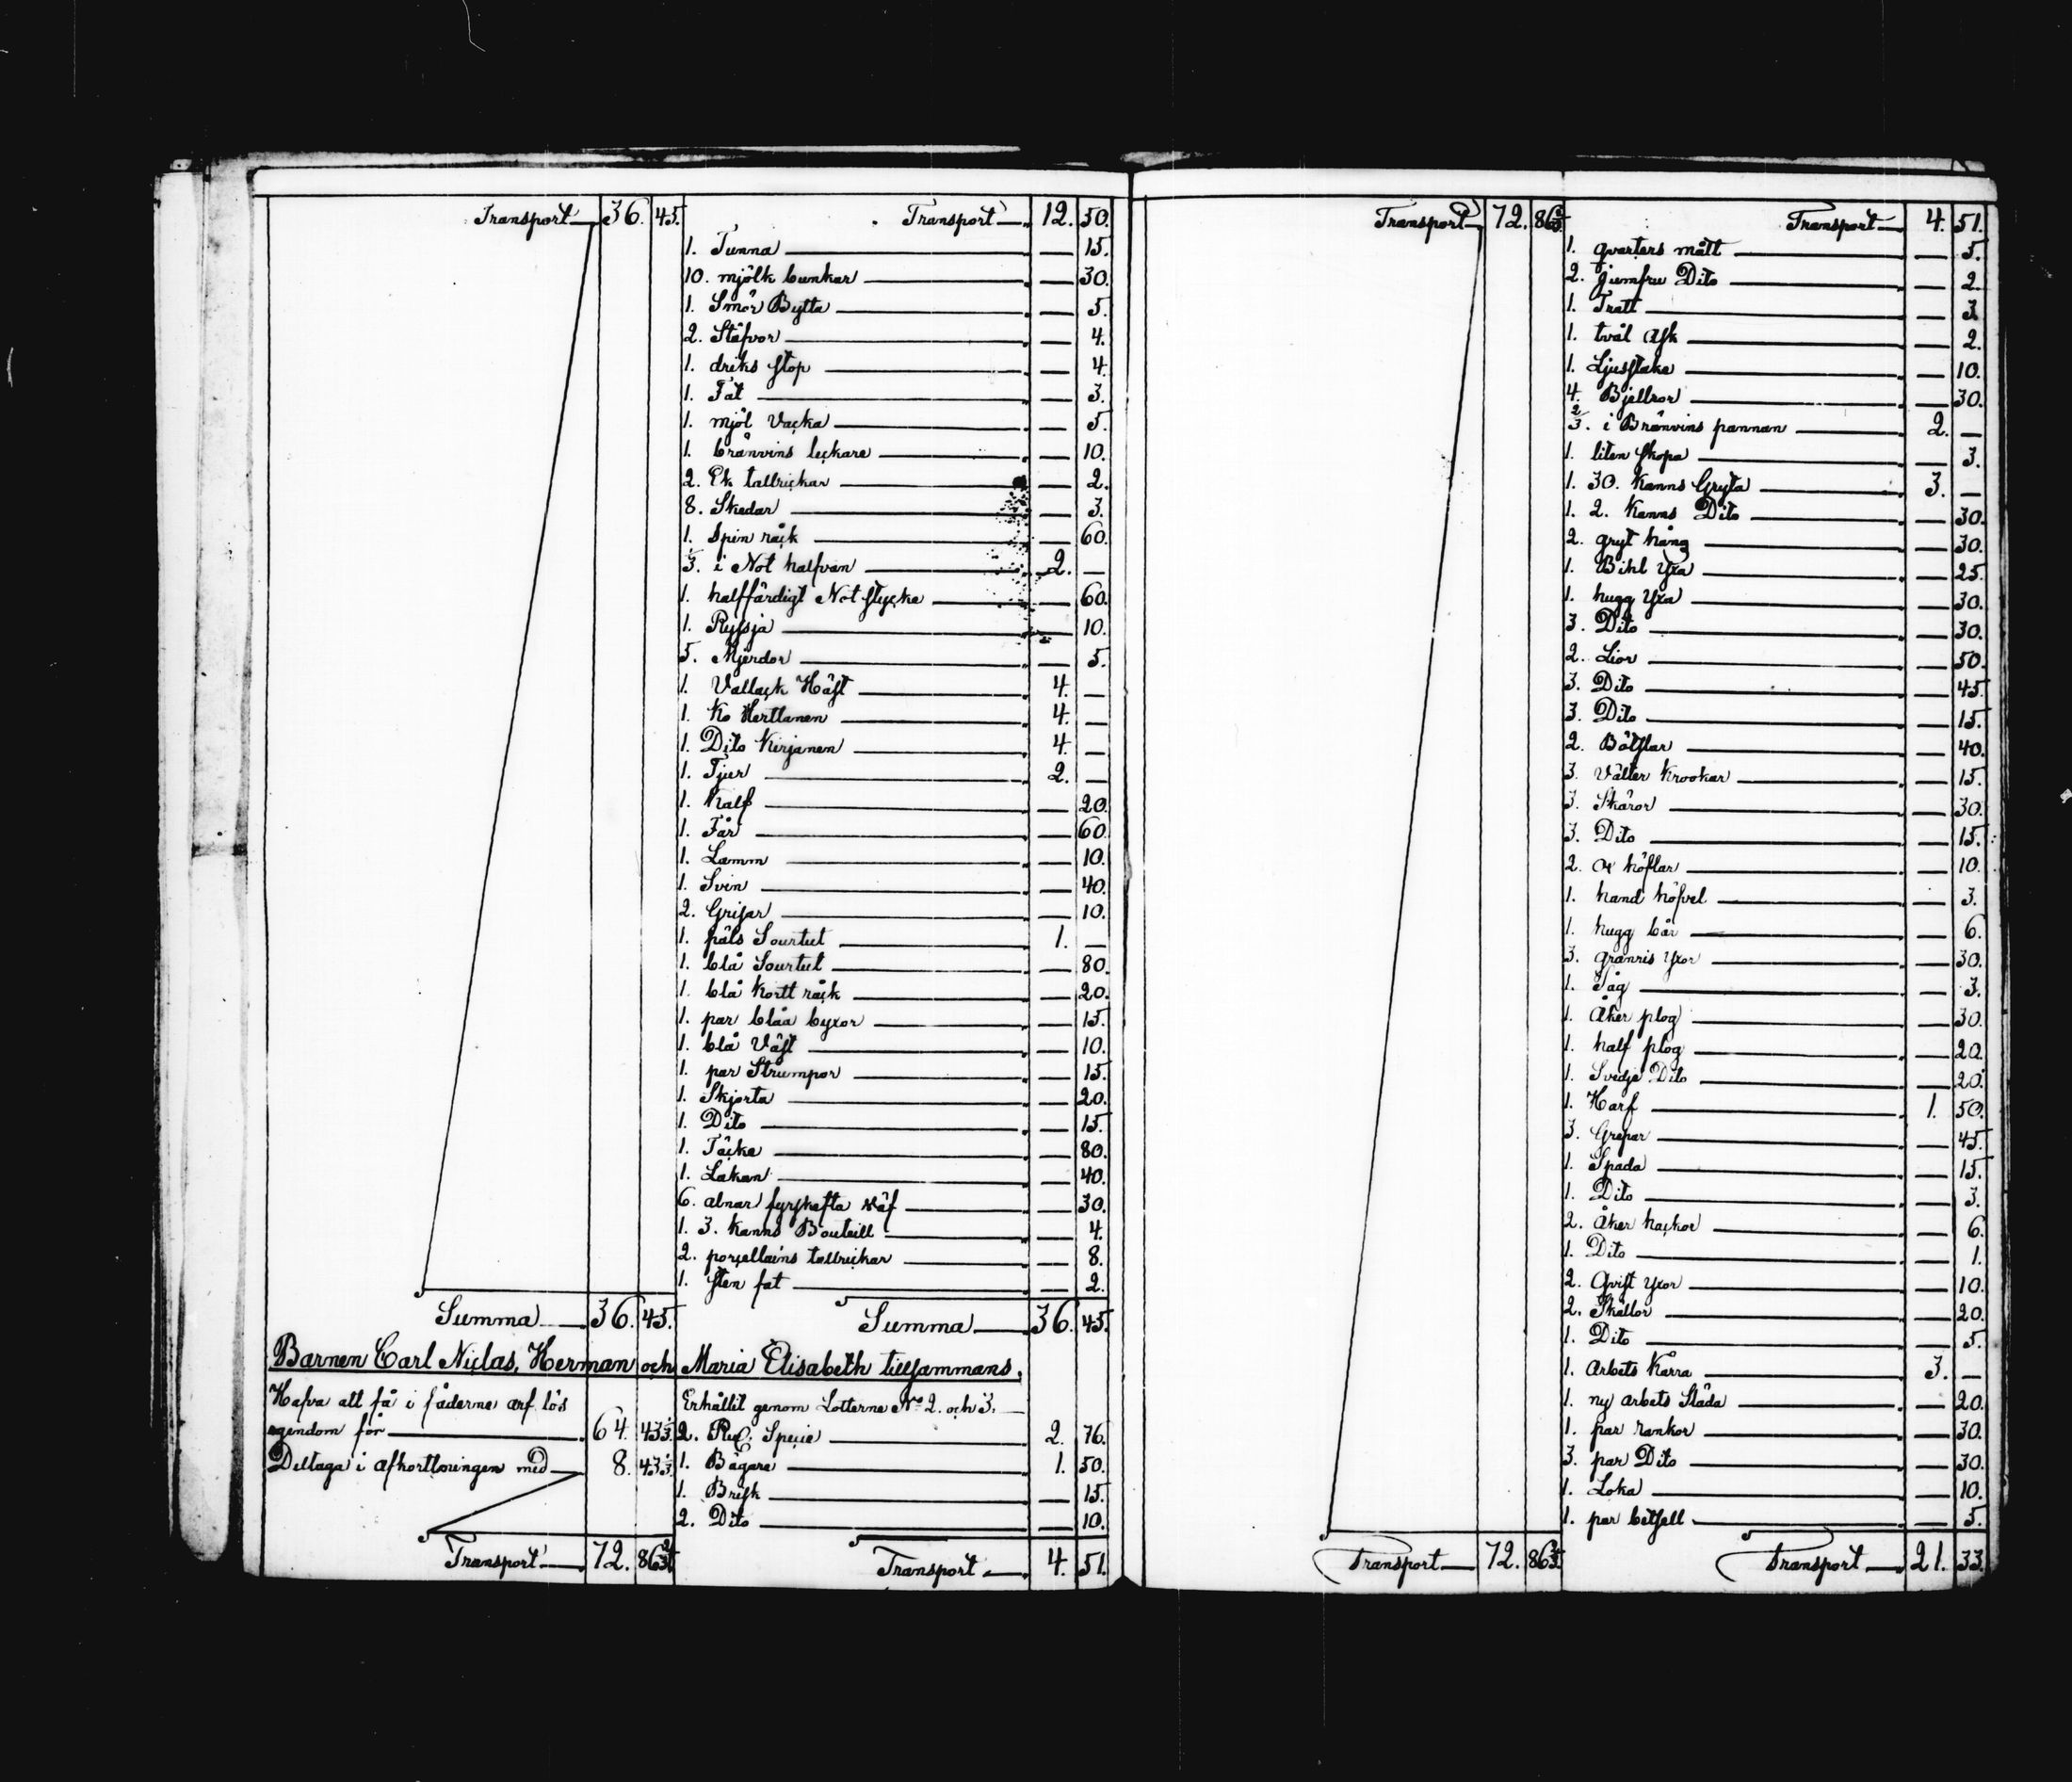 Transport 36. 45.
Transport 12. 50.
1. Tunna — 15.
10. mjölk bunkar — 30.
1. Smör Bytta — 5.
2. Stäfvor — 4.
1. driks stop — 4.
1. Fat — 3.
1. mjöl Vacka — 5.
1. bränvins leckare — 10.
2. Ek tallrickar — 2.
8. Skedar — 3.
1. Spin råck — 60.
1/3. i Not halfvan 2. —
1. halffärdigt Not stycke — 60.
1. Ryssja — 10.
5. Mjerdor — 5.
1. Vallack Häst 4. —
1. Ko Herttanen 4. —
1. Dito Kirjanen 4. —
1. Tjur 2. —
1. Kalf — 20.
1. Får — 60.
1. Lamm — 10.
1. Svin — 40.
2. Grisar — 10.
1. päls Sourtut 1. —
1. blå Sourtut — 80.
1. blå kortt råck — 20.
1. par blåa byxor — 15.
1. blå Väst — 10.
1. par Strumpor — 15.
1. Skjorta — 20.
1. Dito — 15.
1. Täcke — 80.
1. Lakan — 40.
6. alnar fyrskafta väf — 30.
1. 3. kanns Bouteill — 4.
2. porcellains tallrickar — 8.
1. sten fat — 2.
Summa 36. 45.
Summa 36. 45.
Barnen Carl Niclas, Herman och Maria Elisabeth tillsammans.
Hafva att få i fäderne arf lös
egendom för 64. 43 1/3.
Deltaga i afkortningen med 8. 43 1/3.
Erhållit genom Lotterne No 2. och 3.
2. Specie 2. 76.
1. Bägare 1. 50.
1. Brisk — 15.
2. Dito — 10.
Transport 72. 86 2/3.
Transport 4. 51.
Transport 72. 86 2/3.
Transport 4. 51.
1. qvarters mått — 5.
2. jumfru Dito — 2.
1. Tratt — 3.
1. tvål Ask — 2.
1. Ljusstake — 10.
4. Bjellror — 30.
2/3. i Bränvins pannan 2. —
1. liten skopa — 3.
1. 30. Kanns Gryta 3. —
1. 2. Kanns Dito — 30.
2. gryt häng — 30.
1. Bihl Yxa — 25.
1. hugg Yxa — 30.
3. Dito — 30.
2. Lior — 50.
3. Dito — 45.
3. Dito — 15.
2. Bötslar — 40.
3. Välter Krookar — 15.
3. Skäror — 30.
3. Dito — 15.
2. höflar — 10.
1. hand höfvel — 3.
1. hugg bår — 6.
3. granris Yxor — 30.
1. Såg — 3.
1. Åker plog — 30.
1. half plog — 20.
1. Svedje Dito — 20.
1. Harf 1. 50.
3. Grepar — 45.
1. Spada — 15.
1. Dito — 3.
2. Åker hackor — 6.
1. Dito — 1.
2. Qvist Yxor — 10.
2. Skällor — 20.
1. Dito — 5.
1. Arbets Kärra 3. —
1. ny arbets Släda — 20.
1. par rankor — 30.
3. par Dito — 30.
1. Loka — 10.
1. par betsell — 5.
Transport 72. 86 2/3.
Transport 21. 33.